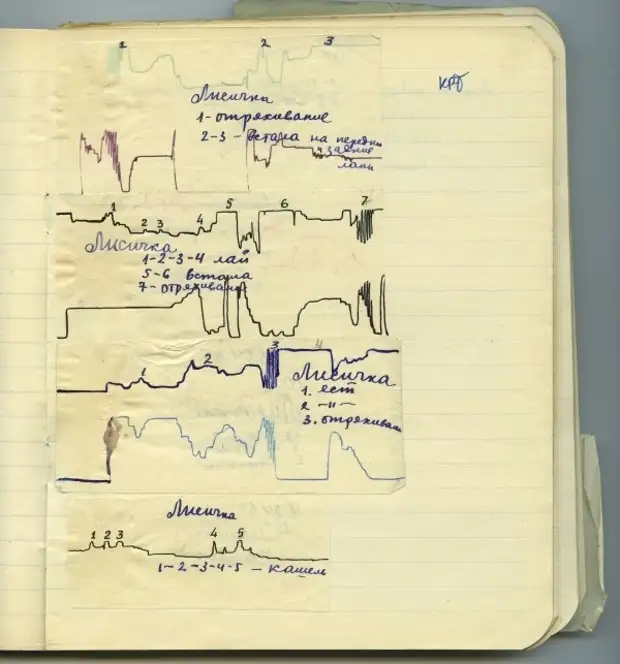 1 2 3
Лисичка
КРБ
1- отряхивание
2-3 - встала на передни
и задние
лапы
1 2 3 4 5 6 7
Лисичка
1-2-3-4 лай
5-6 встала
7- отряхивание
1 2 3 4
Лисичка
1. ест
2 -"-
3. отряхиван
Лисичка
1 2 3 4 5
1-2-3-4-5 - кашель